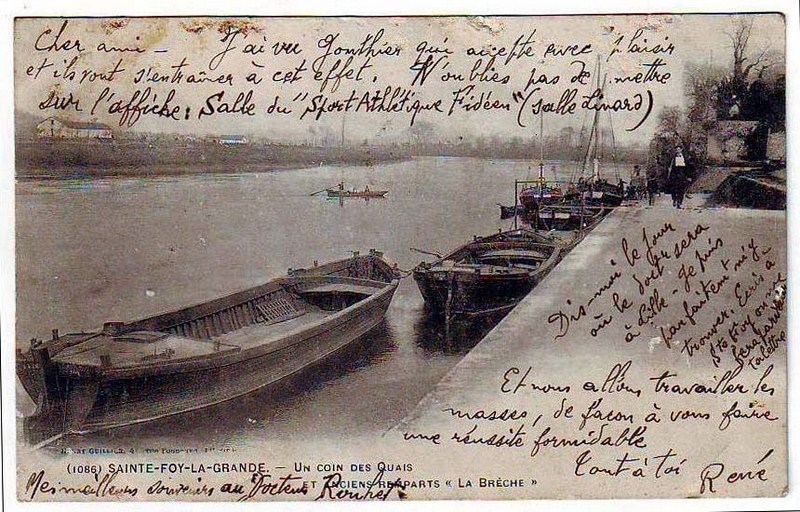 Cher ami – J'ai vu Gonthier qui accepte avec plaisir
et ils vont s'entraîner à cet effet. N'oublies pas de mettre
sur l'affiche: Salle du "Sport Athlétique Fidéen" (salle Linard)
Dis-moi le jour
où le doctr sera
à Lille – Je puis
parfaitent m'y
trouver. Ecris à
Ste Foy on me
fera parvenir
ta lettre
Et nous allons travailler les
masses, de façon à vous faire
une réussite formidable
Tout à toi René
(1086) SAINTE-FOY-LA-GRANDE. – UN COIN DES QUAIS
ET ANCIENS REMPARTS « LA BRÈCHE »
Mes meilleurs souvenirs au Docteur